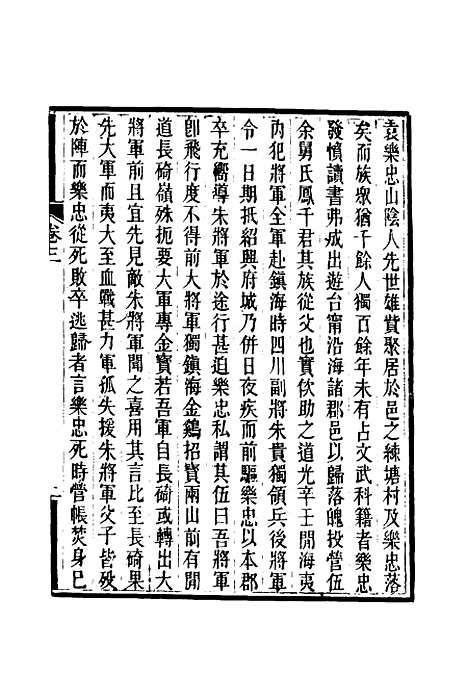 袁樂忠山陰人先世雄貲聚居於邑之練塘村及樂忠落
矣而族眾猶千餘人獨百餘年未有占文武科籍者樂忠
發憤讀書弗成出遊台甯沿海諸郡邑以歸落魄投營伍
余舅氏鳳千君其族從父也實佽助之道光辛壬閒海夷
內犯將軍全軍赴鎮海時四川副將朱貴獨領兵後將軍
令一日期抵紹興府城乃併日夜疾而前驅樂忠以本郡
卒充嚮導朱將軍於途行甚迫樂忠私謂其伍曰吾將軍
卽飛行度不得前大將軍獨鎮海金鷄招寶兩山前有閒
道長碕嶺殊扼要大軍專金寶若吾軍自長碕或轉出大
將軍前且宜先見敵朱將軍聞之喜用其言比至長碕果
先大軍而夷大至血戰甚力軍孤失援朱將軍父子皆歿
於陣而樂忠從死敗卒逃歸者言樂忠死時營帳焚身已
卷三